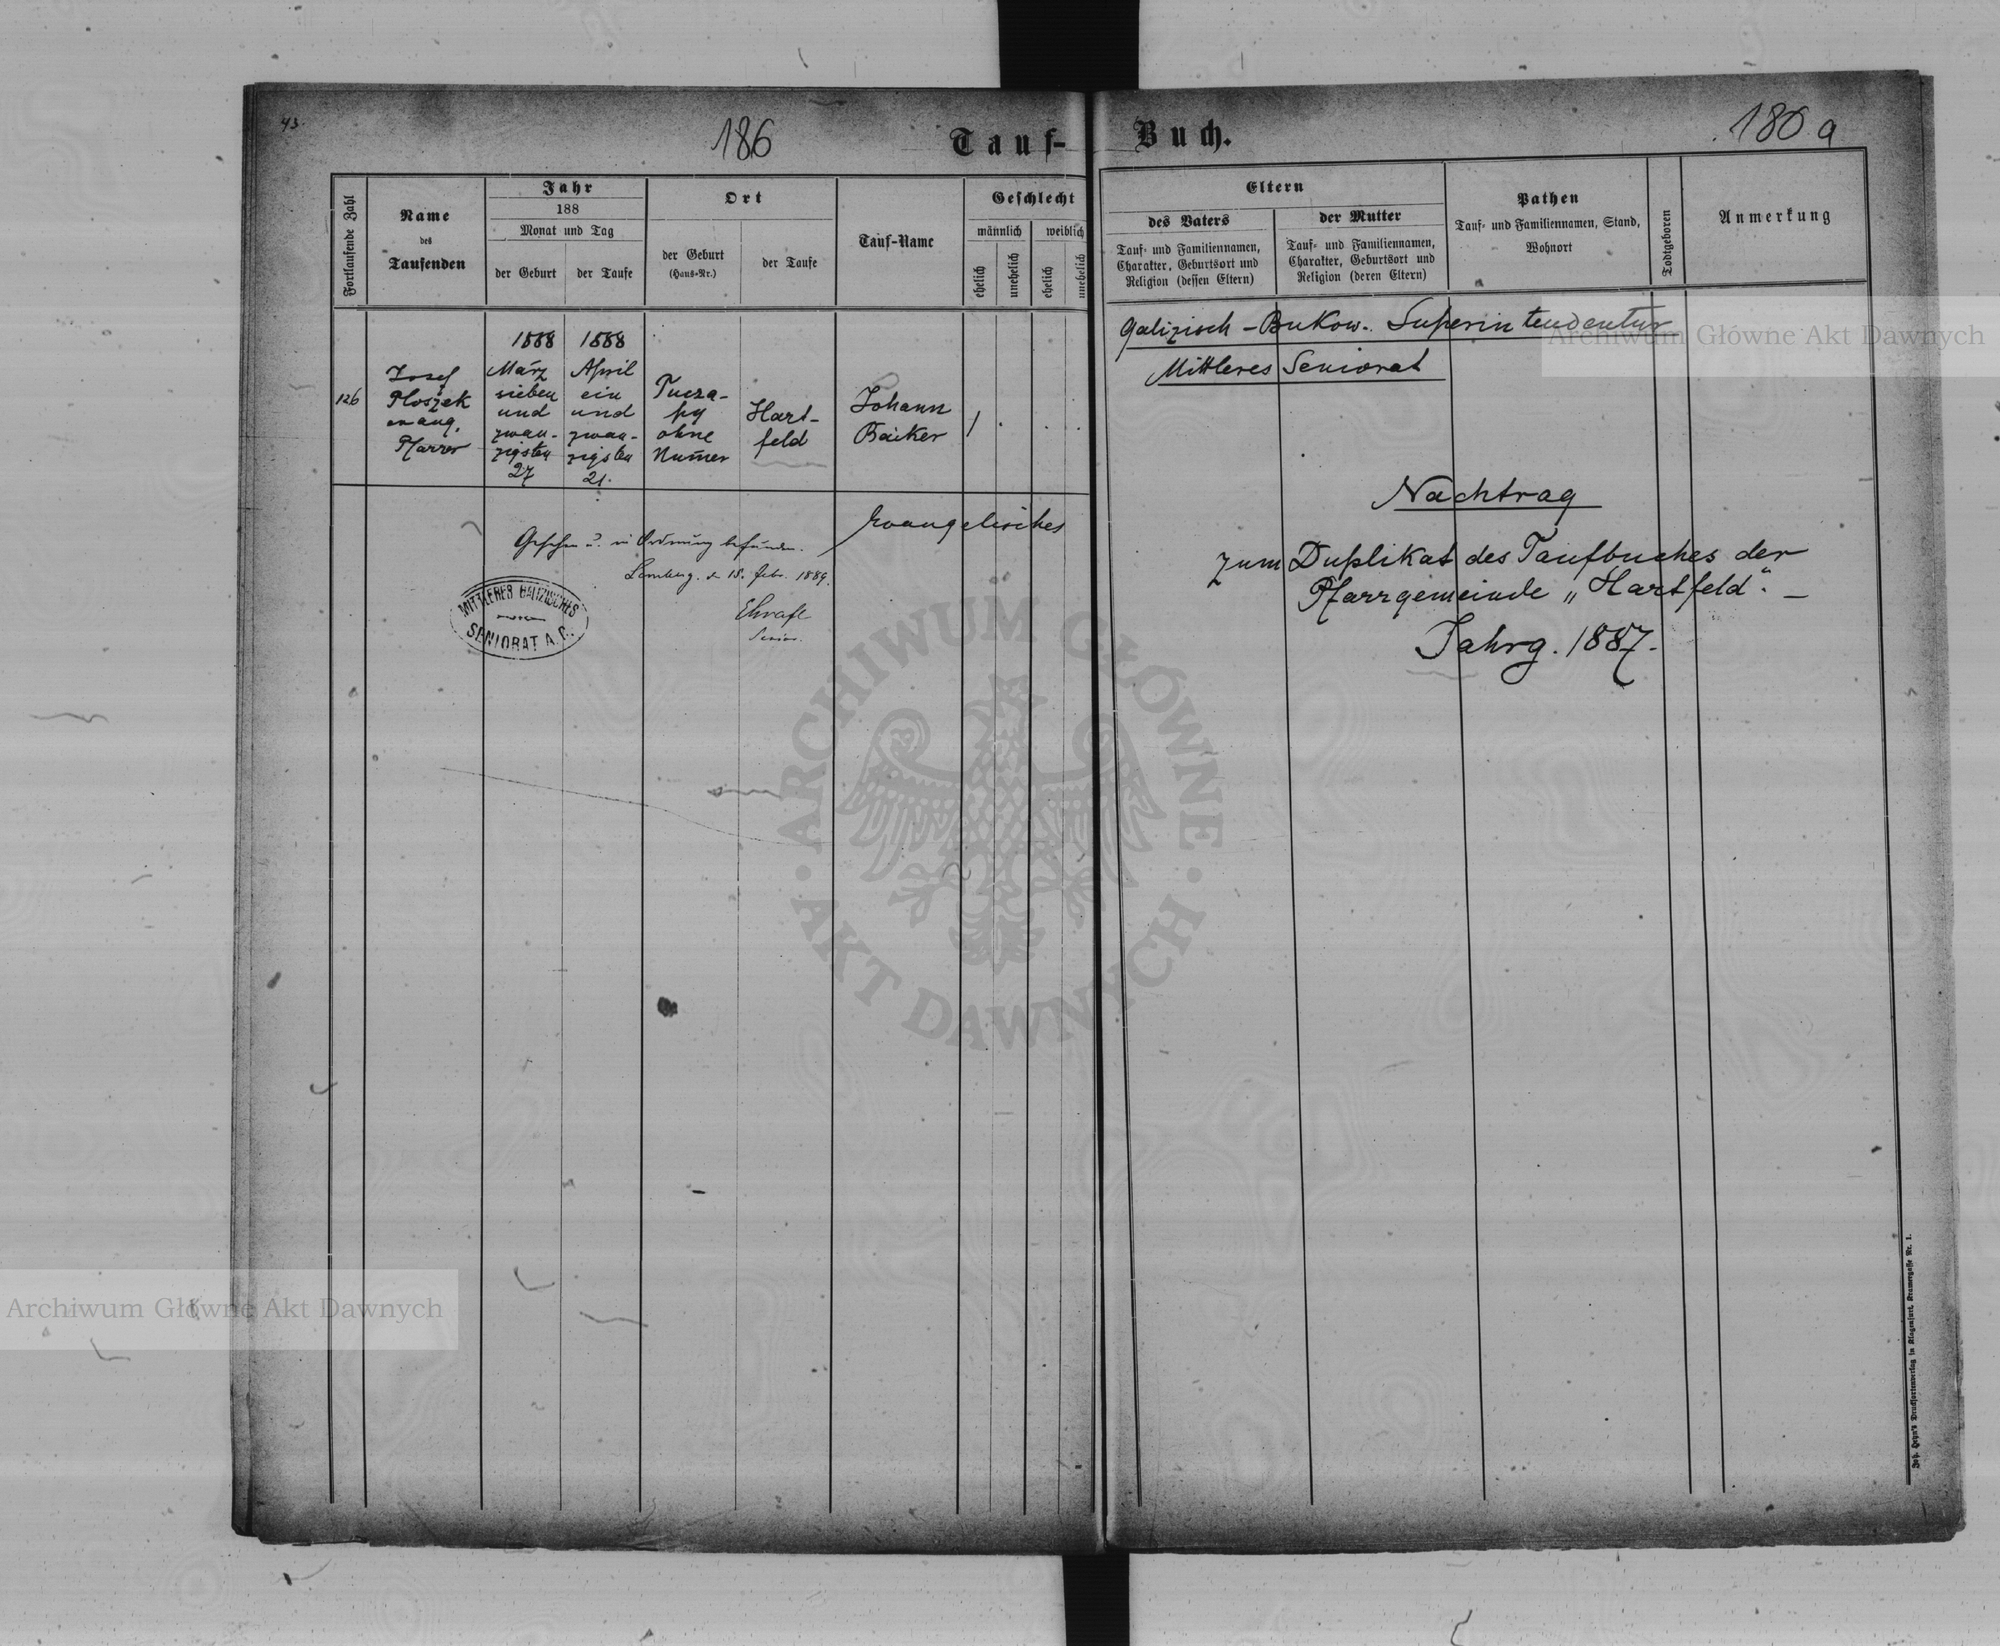 43.
186
Tauf-
Fortlaufende Zahl
Name
des
Taufenden
Jahr
188
Monat und Tag
der Geburt
der Taufe
Ort
der Geburt
(Haus-Nr.)
der Taufe
Tauf-Name
Geschlecht
männlich
weiblich
ehelich
unehelich
ehelich
unehelich
126
Josef
Ploszek
evang.
Pfarrer
1888
März
sieben
und
zwan-
zigsten
27
1888
April
ein
und
zwan-
zigsten
21.
Tucza-
py
ohne
Num̄er
Hart-
feld
Johann
Bäcker
1
Evangelisches
Gesehen u. in Ordnung befunden.
Lemberg. d 18. Febr. 1889.
Senior.
MITTLERES GALIZISCHES
SENIORAT A. C.
Buch.
180 a
Eltern
des Vaters
Tauf- und Familiennamen,
Charakter, Geburtsort und
Religion (dessen Eltern)
der Mutter
Tauf- und Familiennamen,
Charakter, Geburtsort und
Religion (deren Eltern)
Pathen
Tauf- und Familiennamen, Stand,
Wohnort
Todtgeboren
Anmerkung
Galizisch-Bukow. Superintendentur
Mittleres Seniorat
Nachtrag
zum Duplikat des Taufbuches der
Pfarrgemeinde „Hartfeld". –
Jahrg. 1887.
Joh. Heyn's Drucksortenverlag in Klagenfurt, Kramergasse Nr. 1.
Archiwum Główne Akt Dawnych
ARCHIWUM GŁÓWNE · AKT DAWNYCH ·
Archiwum Główne Akt Dawnych